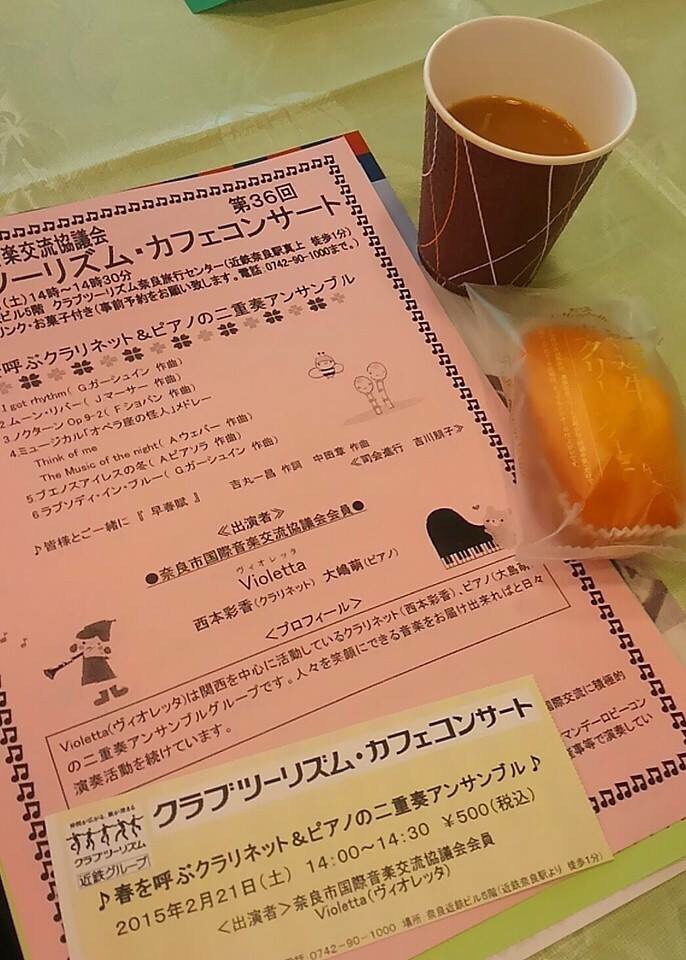 第36回
楽交流協議会
ツーリズム・カフェコンサート
(土)14時～14時30分
ビル5階 クラブツーリズム奈良旅行センター(近鉄奈良駅真上 徒歩1分)
リンク・お菓子付き(事前予約をお願い致します。電話 0742-90-1000まで。)
を呼ぶクラリネット＆ピアノの二重奏アンサンブル
I got rhythm( Gガーシュイン 作曲)
2 ムーン・リバー( Jマーサー 作曲)
3 ノクターン Op9-2( Fショパン 作曲)
4.ミュージカル「オペラ座の怪人」メドレー
Think of me
The Music of the night( Aウェバー 作曲)
5 ブエノスアイレスの冬( Aピアソラ 作曲)
6 ラプソディ・イン・ブルー( Gガーシュイン 作曲)
≪司会進行 吉川朋子≫
♪皆様とご一緒に 『 早春賦 』 吉丸一昌 作詞 中田章 作曲
≪出演者≫
●奈良市国際音楽交流協議会会員●
ヴィオレッタ
Violetta
西本彩香(クラリネット) 大嶋萌(ピアノ)
＜プロフィール＞
Violetta(ヴィオレッタ)は関西を中心に活動しているクラリネット(西本彩香)、ピアノ(大島萌)
の二重奏アンサンブルグループです。人々を笑顔にできる音楽をお届け出来ればと日々
演奏活動を続けています。
国際交流に積極的
マンデーロビーコン
事等で演奏してい
仲間が広がる、旅が深まる
クラブツーリズム
近鉄グループ
クラブツーリズム・カフェコンサート
♪春を呼ぶクラリネット＆ピアノの二重奏アンサンブル♪
2015年2月21日(土) 14:00～14:30 ￥500(税込)
＜出演者＞奈良市国際音楽交流協議会会員
Violetta(ヴィオレッタ)
電話 0742-90-1000 場所:奈良近鉄ビル5階(近鉄奈良駅より 徒歩1分)